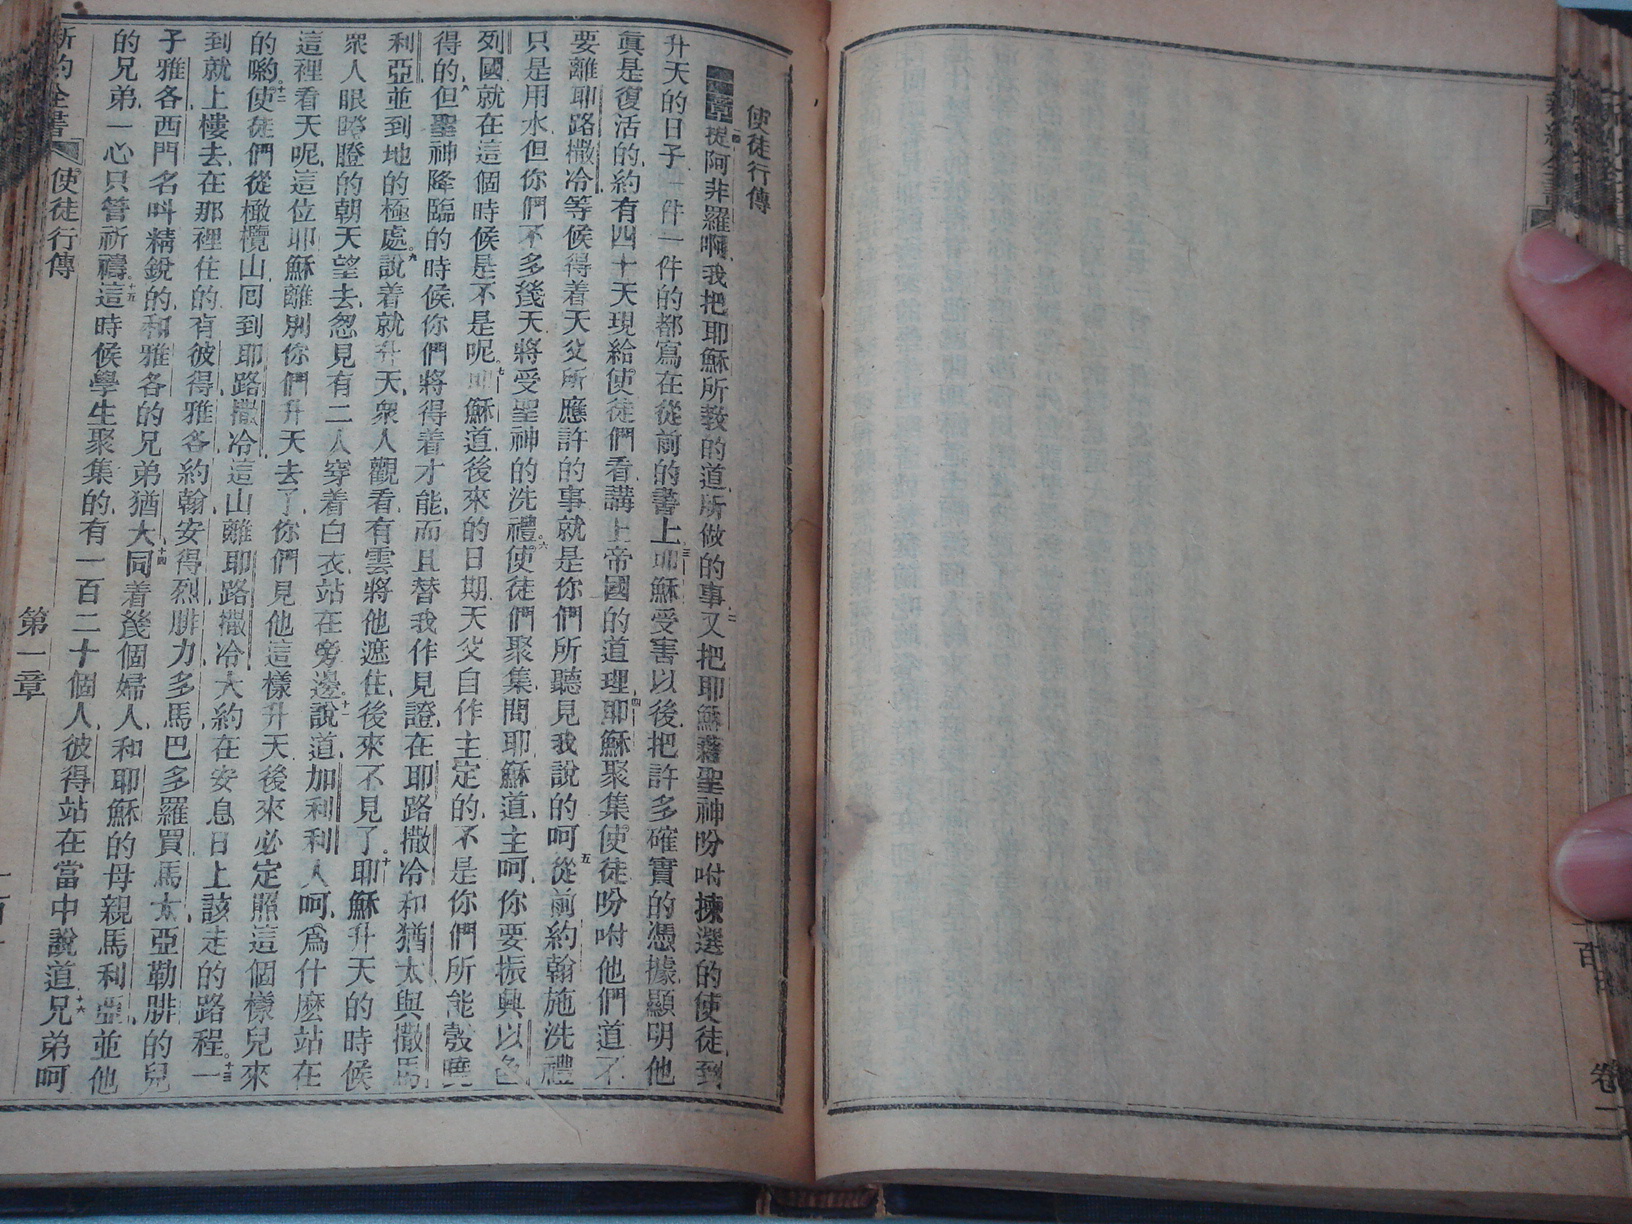 使徒行傳
提阿非羅啊我把耶穌所教的道所做的事二又把耶穌藉聖神吩咐揀選的使徒到
升天的日子一件一件的都寫在從前的書上三耶穌受害以後把許多確實的憑據顯明他
眞是復活的約有四十天現給使徒們看講上帝國的道理四耶穌聚集使徒吩咐他們道不
要離耶路撒冷等候得着天父所應許的事就是你們所聽見我說的呵五從前約翰施洗禮
只是用水但你們不多幾天將受聖神的洗禮六使徒們聚集問耶穌道主呵你要振興以色
列國就在這個時候是不是呢七耶穌道後來的日期天父自作主定的不是你們所能彀曉
得的八但聖神降臨的時候你們將得着才能而且替我作見證在耶路撒冷和猶太與撒馬
利亞並到地的極處九說着就升天衆人觀看有雲將他遮住後來不見了十耶穌升天的時候
衆人眼睜瞪的朝天望去忽見有二人穿着白衣站在旁邊十一說道加利利人呵爲什麼站在
這裡看天呢這位耶穌離別你們升天去了你們見他這樣升天後來必定照這個樣兒來
的喲十二使徒們從橄欖山囘到耶路撒冷這山離耶路撒冷大約在安息日上該走的路程十三一
到就上樓去在那裡住的有彼得雅各約翰安得烈腓力多馬巴多羅買馬太亞勒腓的兒
子雅各西門名叫精銳的和雅各的兄弟猶大十四同着幾個婦人和耶穌的母親馬利亞並他
的兄弟一心只管祈禱十五這時候學生聚集的有一百二十個人彼得站在當中說道十六兄弟呵
新約全書 使徒行傳 第一章
卷一